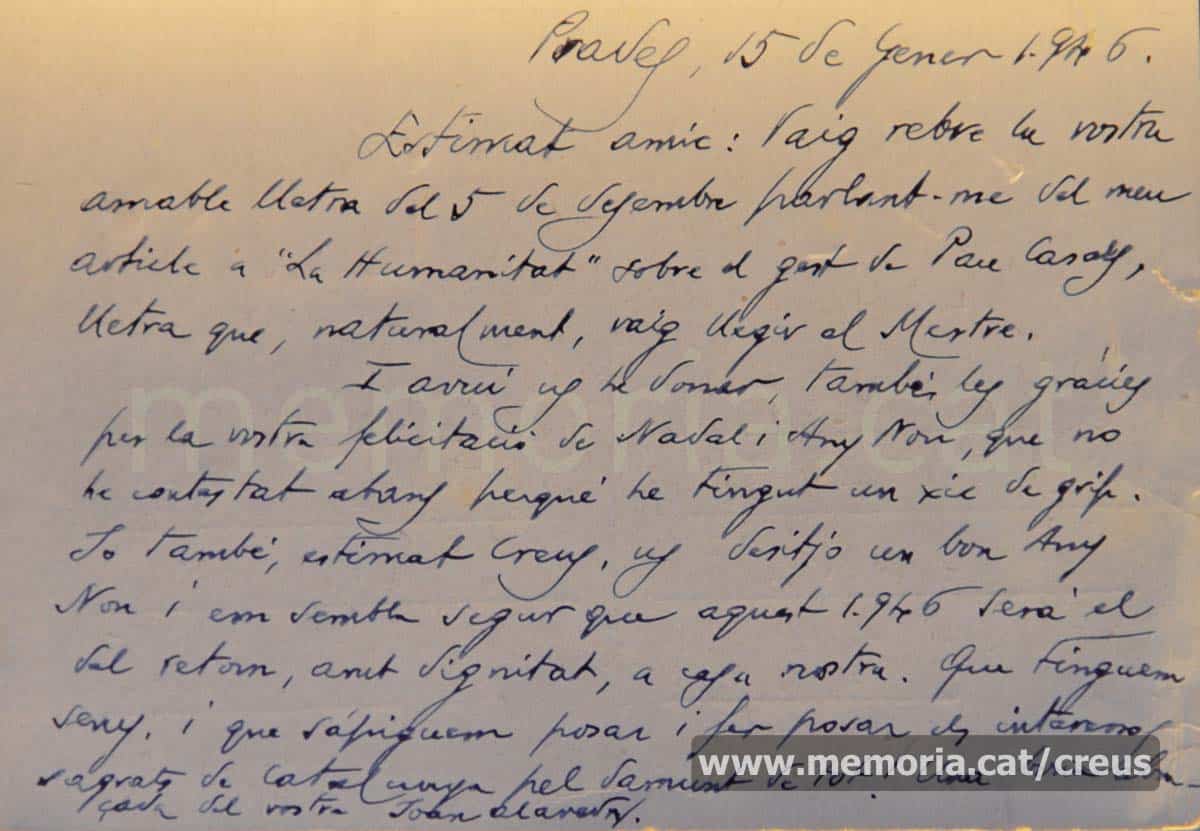 Prades, 15 de Gener 1.946.
Estimat amic: Vaig rebre la vostra
amable lletra del 5 de desembre parlant-me del meu
article a "La Humanitat" sobre el gest de Pau Casals,
lletra que, naturalment, vaig llegir al Mestre.
I avui us he donar, també, les gràcies
per la vostra felicitació de Nadal i Any Nou, que no
he contestat abans perqué he tingut un xic de grip.
Jo també, estimat Creus, us desitjo un bon Any
Nou i em sembla segur que aquest 1.946 será el
del retorn, amb dignitat, a casa nostra. Que tinguem
seny, i que sápiguem posar i fer posar els interessos
sagrats de Catalunya pel damunt de tot. Una abra-
çada del vostre Joan Alavedra.
memoria.cat
www.memoria.cat/creus